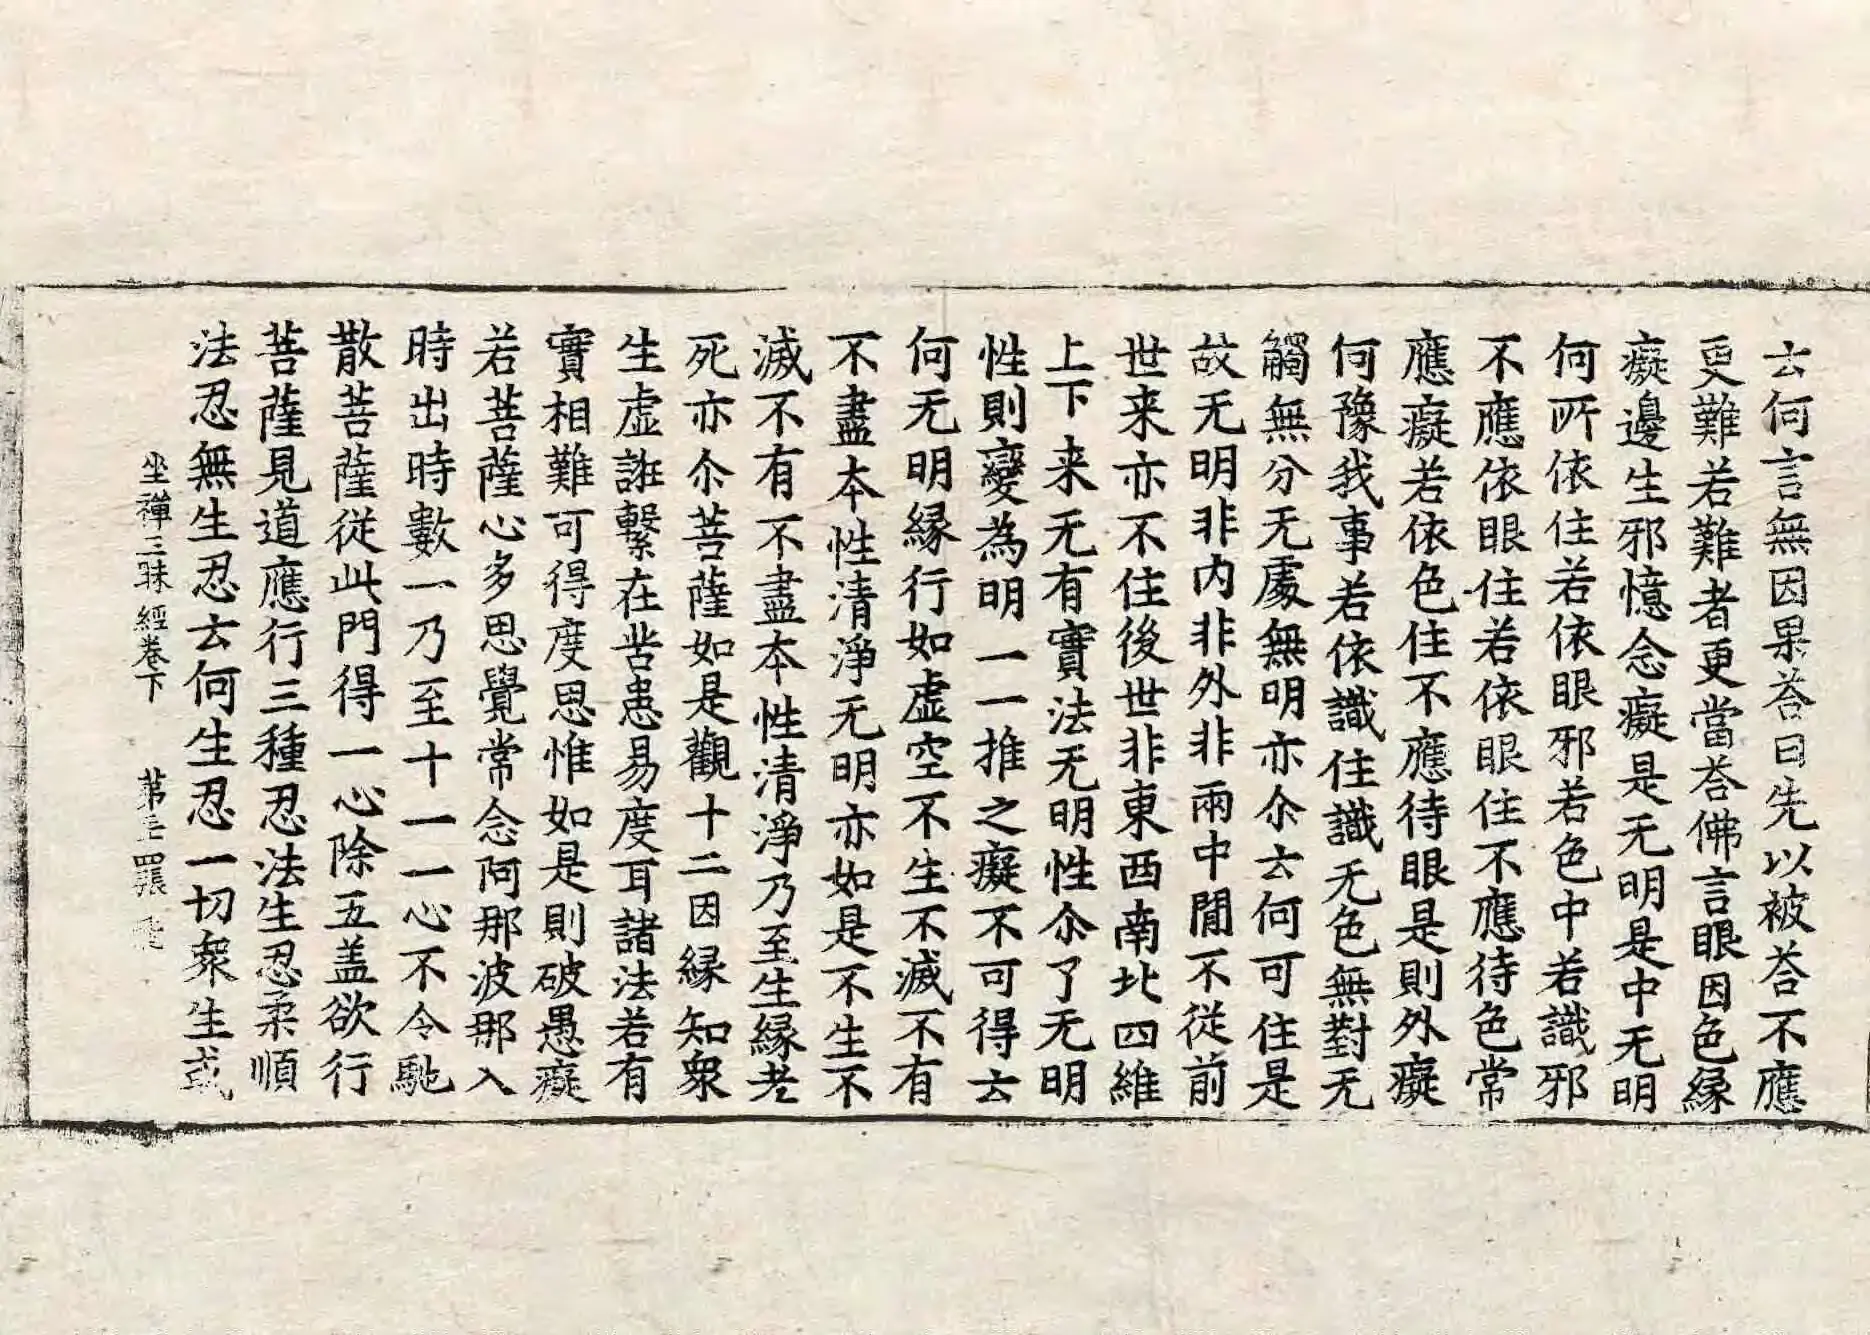 云何言無因果荅曰先以被荅不應
更難若難者更當荅佛言眼因色緣
癡邊生邪憶念癡是无明是中无明
何所依住若依眼邪若色中若識邪
不應依眼住若依眼住不應待色常
應癡若依色住不應待眼是則外癡
何豫我事若依識住識无色無對无
觸無分无處無明亦尒云何可住是
故无明非内非外非兩中閒不從前
世来亦不住後世非東西南北四維
上下来无有實法无明性尒了无明
性則變為明一一推之癡不可得云
何无明緣行如虛空不生不滅不有
不盡本性清淨无明亦如是不生不
滅不有不盡本性清淨乃至生緣老
死亦尒菩薩如是觀十二因緣知衆
生虛誑繫在苦患易度耳諸法若有
實相難可得度思惟如是則破愚癡
若菩薩心多思覺常念阿那波那入
時出時數一乃至十一一心不令馳
散菩薩從此門得一心除五盖欲行
菩薩見道應行三種忍法生忍柔順
法忍無生忍云何生忍一切衆生或
坐禪三昧經卷下 第 張